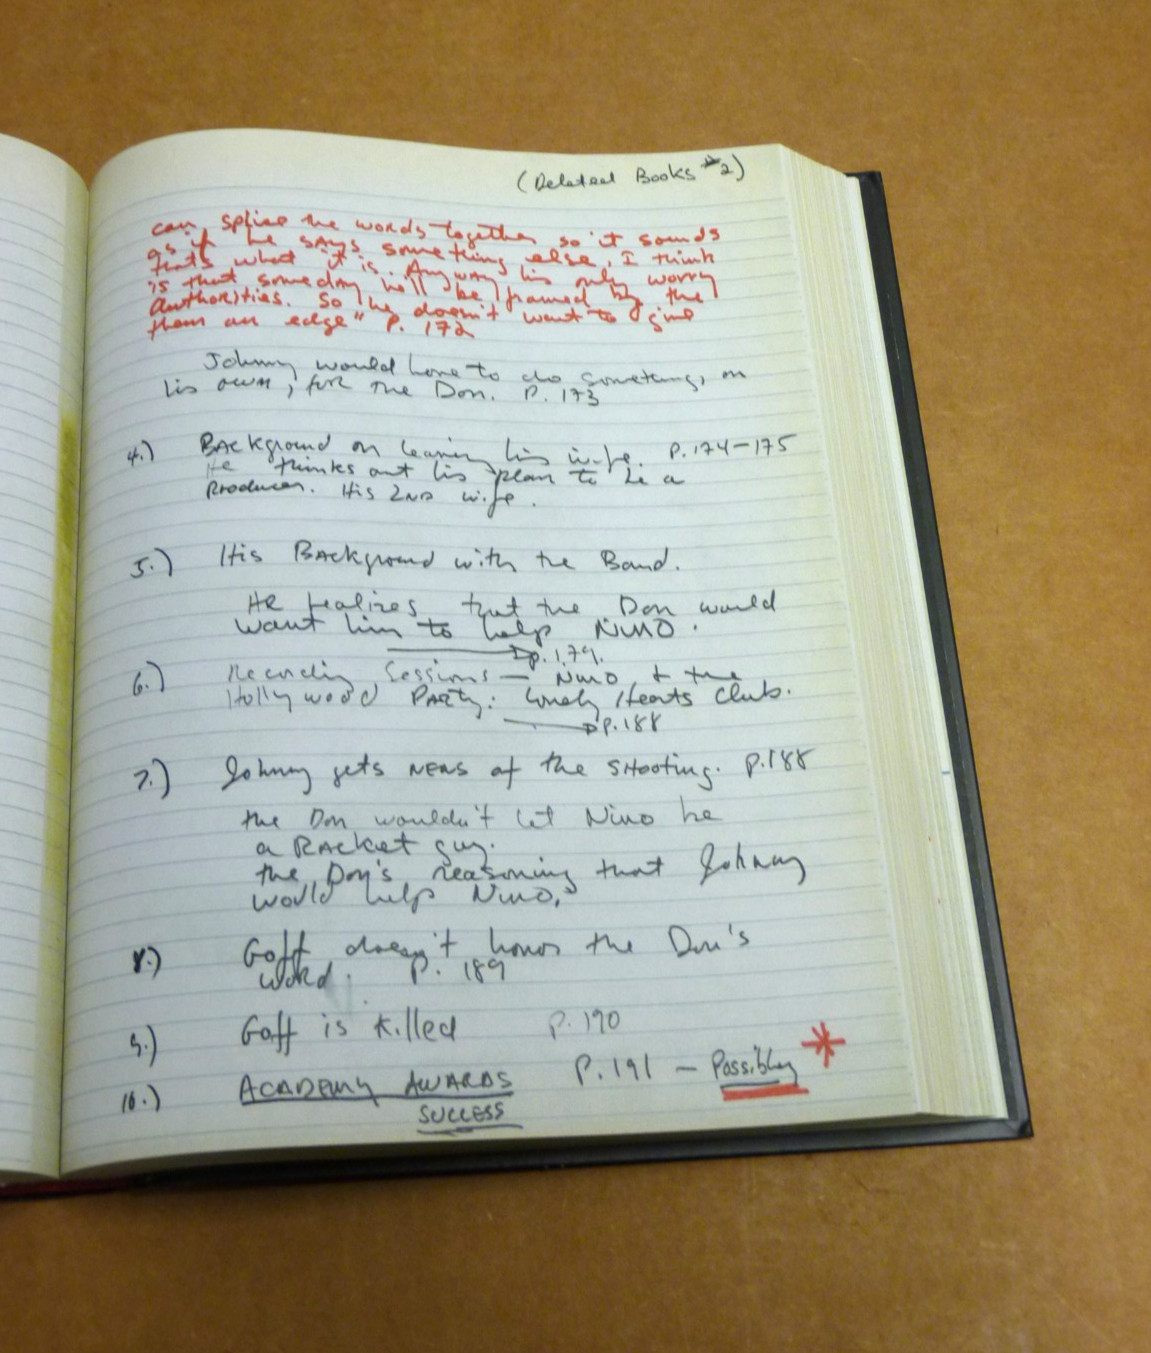 (Deleted Books #2)
can splice the words together so it sounds
as if he says something else, I think
that's what it is. Anyway his only worry
is that someday he'll be framed by the
authorities. So he doesn't want to give
them an edge" P. 172
Johnny would have to do something, on
his own, for the Don. P. 173
4.) Background on leaving his wife. P. 174-175
He thinks out his plan to be a
Producer. His 2ND wife.
5.) His Background with the Band.
He realizes that the Don would
want him to help NINO.
→ p. 179.
6.) Recording Sessions — Nino & the
Hollywood PARTY: Lonely Hearts Club.
→ P. 188
7.) Johnny gets NEWS of the SHooting. P. 188
the Don wouldn't let Nino be
a RACKET guy.
the Don's reasoning that Johnny
would help Nino.
8.) Goff doesn't honor the Don's
word. P. 189
9.) Goff is Killed P. 190
10.) ACADEMY AWARDS P. 191 — Possibley *
SUCCESS